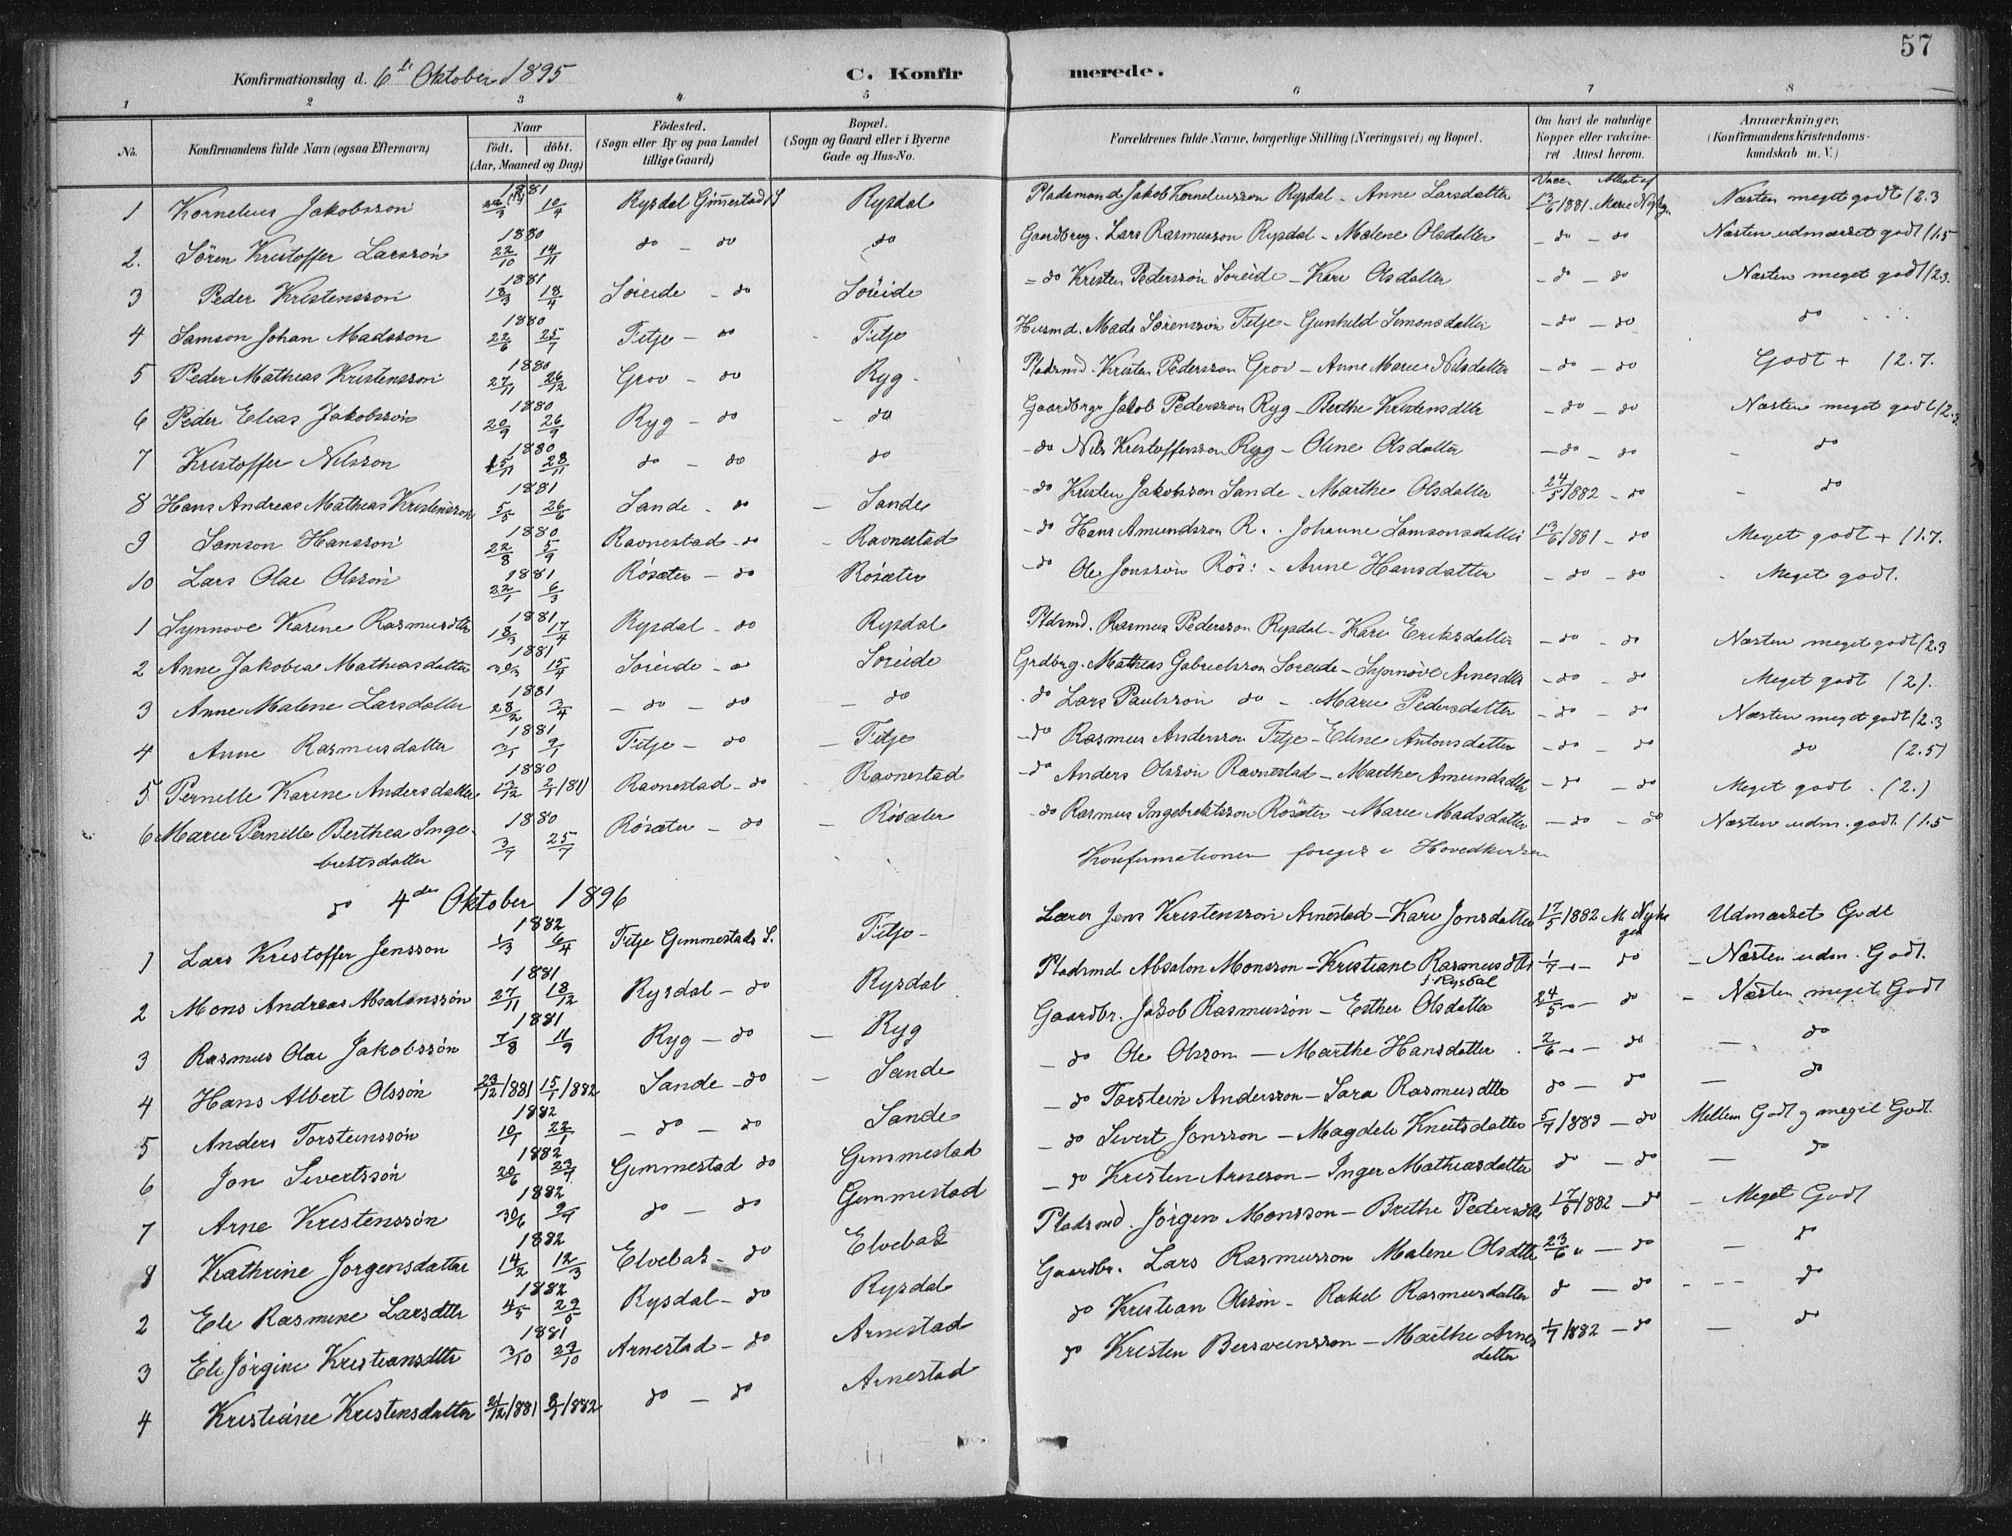 57
Konfirmationsdag d. 6te Oktober 1895 C. Konfirmerede.
1 2 3 4 5 6 7 8
No. Konfirmandens fulde Navn (ogsaa Efternavn) Naar födt. döbt. (Aar, Maaned og Dag) Födested. (Sogn eller By og paa Landet tillige Gaard) Bopæl. (Sogn og Gaard eller i Byerne Gade og Hus-No. Forældrenes fulde Navne, borgerlige Stilling (Næringsvei) og Bopæl. Om havt de naturlige Kopper eller vakcineret Attest herom. Anmærkninger. (Konfirmandens Kristendomskundskab m. V.)
1 Kornelius Jakobsson 1881 10/4 Rysdal Gimmestad S Rysdal Pladsmand Jakob Korneliusson Rysdal - Anne Larsdatter 13/6 1881 Næsten meget godt (2.3
2. Sören Kristoffer Larssön 1880 22/10 14/11 do - do do Gaardbrug. Lars Rasmusson Rysdal - Malene Olsdatter - do - do Næsten udmærket godt (1.5
3 Peder Kristensson 1881 18/3 18/4 Söreide - do Söreide - do Kristen Pederssön Soreide - Kari Olsdatter - do - do Næsten meget godt (2.3.
4 Samson Johan Madsson 1880 22/6 25/7 Fitje - do Fitje Husmd. Mads Sörensson Fitje - Gunhild Simonsdatter - do - do do
5 Peder Mathias Kristensson 1880 27/11 26/12 Grov - do Ryg. Pladsmd. Kristen Pedersson Grov - Anne Marie Nilsdatter - do - do Godt + (2.7.
6 Peder Elias Jakobssön 1880 20/9 26/9 Ryg - do - do Gaardbrgr Jakob Pedersson Ryg - Berthe Kristensdtter - do - do Næsten meget godt (2.3
7 Kristoffer Nilsson 1880 15/11 28/11 do - do do - do Nils Kristoffersson Ryg - Oline Olsdatter - do - do - do
8 Hans Andreas Mathias Kristensson 1881 5/5 26/6 Sande - do - Sande - do Kristen Jakobsson Sande - Marthe Olsdatter 24/5 1882 - do - do
9 Samson Hansson 1880 22/8 5/9 Ravnestad - do - Ravnestad - do Hans Amundsson R. - Johanne Samsonsdatter 13/6 1881 - do Meget godt + (1.7.
10 Lars Olai Olssön 1881 22/1 6/3 Rösæter - do Rösæter - do Ole Jonssön Rös: - Anne Hansdatter - do - do - Meget godt.
1 Synnove Karine Rasmusdtter 1881 18/3 17/4 Rysdal - do Rysdal Pldsmd. Rasmus Pedersson Rysdal - Kari Eriksdatter - do - do Næsten meget godt (2.3
2 Anne Jakobia Mathiasdatter 1881 15/4 Soreide - do Soreide Grdbrg. Mathias Gabrielsson Soreide - Synnöve Arnesdtter - do - do Meget godt (2).
3 Anne Malene Larsdatter 1881 28/2 3/4 - do - do - do - do Lars Paulsson do - Marie Pedersdatter - do - do Næsten meget godt (2.3
4 Anne Rasmusdatter 1881 9/1 Fitje - do - Fitje - do Rasmus Andersson Fitje - Eline Antonsdatter - do - do do (2.5)
5 Pernille Karine Andersdatter 1880 2/1 1881 Ravnestad - do Ravnestad - do Anders Olssön Ravnestad - Marthe Amundsdtter - do - do Meget godt . (2.)
6 Marie Pernille Berthea Ingebrektsdatter 1880 3/7 25/7 Rösæter - do - Rösæter - do Rasmus Ingebrektsson Rösæter - Marie Madsdatter - do - do Næsten udm. godt (1.5
Konfirmationen foregik i Hovedkirken
do 4de Oktober 1896
1 Lars Kristoffer Jensson 1882 1/3 6/4 Fitje Gimmestads S. Fitje - Lærer Jens Kristensson Arnestad - Kari Jonsdatter 17/5 1882 Udmærket Godt
2 Mons Andreas Absalonssön 1881 27/11 18/12 Rysdal - do Rysdal Pladsmd Absalon Monsson - Kristiane Rasmusdtter Rysdal 1/7 - do - Næsten udm. Godt.
3 Rasmus Olai Jakobssön 1881 7/8 11/9 Ryg - do - Ryg Gaardbr. Jakob Rasmussön - Esther Olsdatter 24/5 - do - Næsten meget Godt
4 Hans Albert Olssön 23/12 1881 15/1 1882 Sande - do - Sande - do Ole Olsson - Marthe Hansdatter 2/6 - do - do
5 Anders Torsteinssön 1882 10/1 22/1 - do - do Sande - do Torstein Andersson - Sara Rasmusdtter do - do - do
6 Jon Sivertssön 1882 20/6 23/7 Gimmestad do Gimmestad - do Sivert Jonsson - Magdeli Knutsdatter 5/7 1883 - do Mellem Godt og meget Godt.
7 Arne Kristenssön 1882 30/6 9/7 do - do Gimmestad - do Kristen Arnesson - Inger Mathiasdatter do - do - do
8 Kathrine Jörgensdatter 1882 14/2 12/3 Elvebak - do Elvebak Pladsmd. Jörgen Monsson - Brithe Pedersdtter 17/5 1882 - do - Meget Godt
2 Eli Rasmine Larsdtter 1882 4/5 29/5 Rysdal - do Rysdal Gaardbr. Lars Rasmusson Malene Olsdtter 23/6 " - do - do
3 Eli Jörgine Kristiansdtter 1881 3/10 23/10 Arnestad - do Arnestad do Kristian Olssön - Rakel Rasmusdatter do - do - - - do
4 Kristiane Kristensdatter 1881 1882 do - do Arnestad do Kristen Bersveinsson - Marthe Arnesdatter 1/7 1882 - do - do